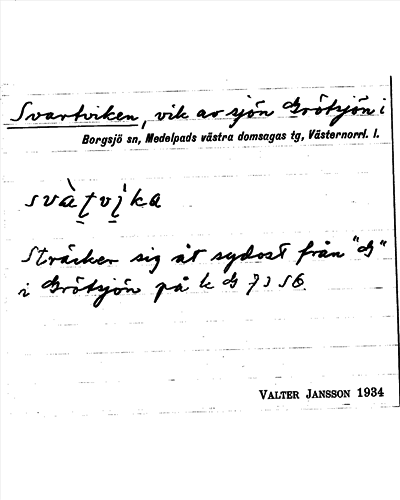 Svartviken, vik av sjön Grötsjön i
Borgsjö sn, Medelpads västra domsagas tg, Västernorrl. l.
svàtvi̇̀ka
Sträcker sig åt sydost från "G"
i Grötsjön på k G 7 3 56.
VALTER JANSSON 1934